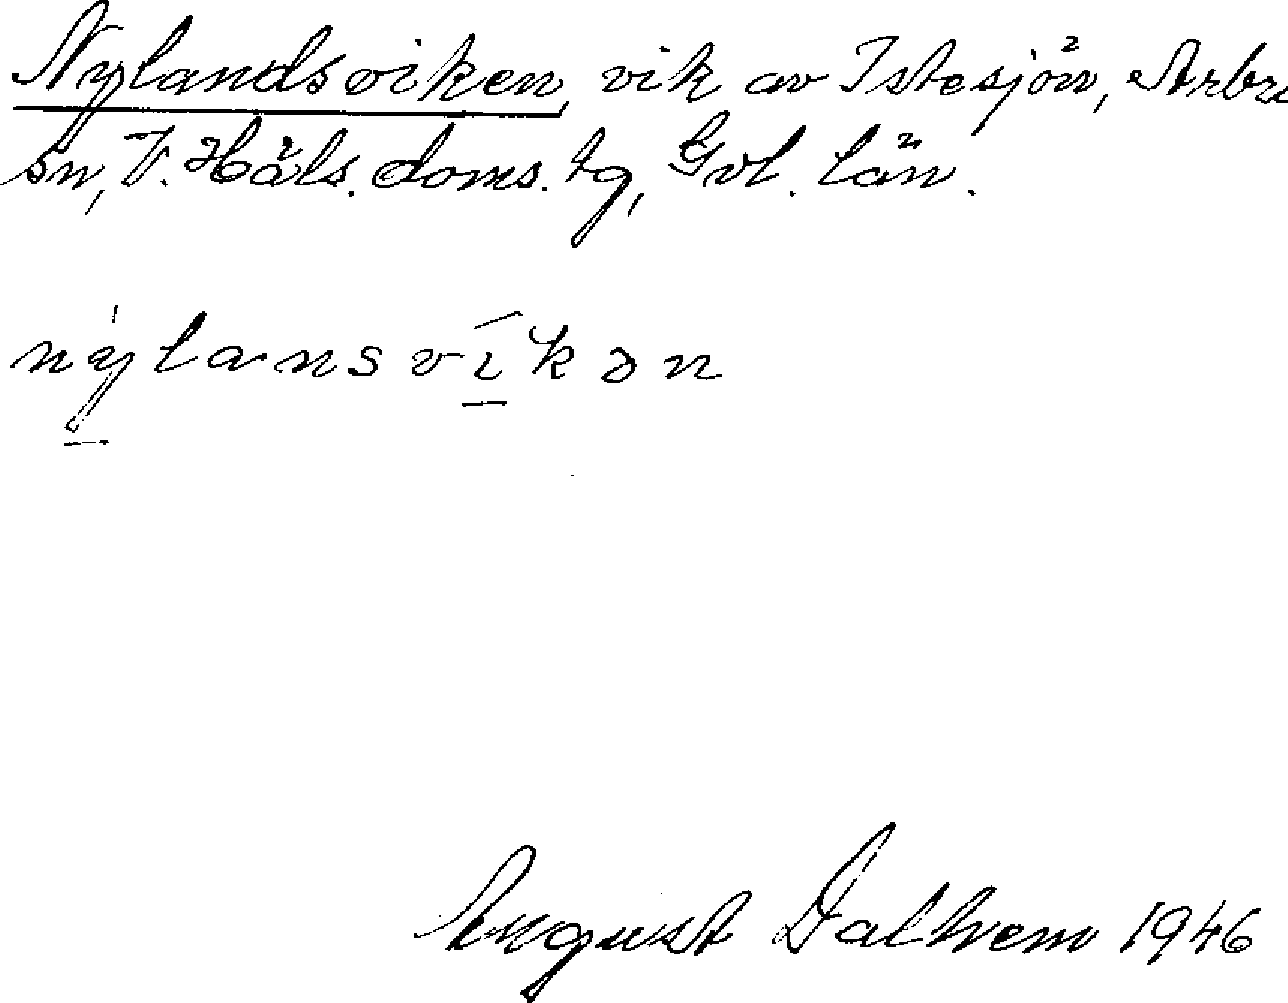 Nylandsviken, vik av Istesjön, Arbrå
sn, V. Häls. doms. tg, Gvl. län.
nỳlansvíkən
August Dalhem 1946